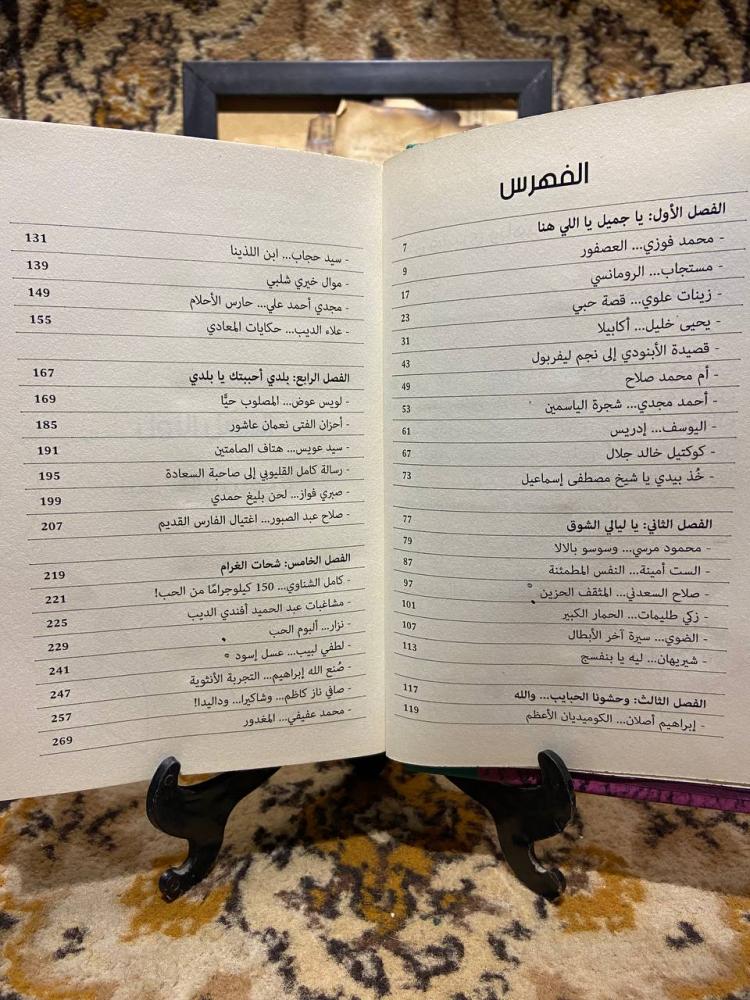 الفهرس
الفصل الأول: يا جميل يا اللي هنا 7
- محمد فوزي... العصفور 9
- مستجاب... الرومانسي 17
- زينات علوي... قصة حبي 23
- يحيى خليل... أكابيلا 31
- قصيدة الأبنودي إلى نجم ليفربول 43
- أم محمد صلاح 49
- أحمد مجدي... شجرة الياسمين 53
- اليوسف... إدريس 61
- كوكتيل خالد جلال 67
- خُذ بيدي يا شيخ مصطفى إسماعيل 73
الفصل الثاني: يا ليالي الشوق 77
- محمود مرسي... وسوسو بالالا 79
- الست أمينة... النفس المطمئنة 87
- صلاح السعدني... المثقف الحزين 97
- زكي طليمات... الحمار الكبير 101
- الضوي... سيرة آخر الأبطال 107
- شيريهان... ليه يا بنفسج 113
الفصل الثالث: وحشونا الحبايب... والله 117
- إبراهيم أصلان... الكوميديان الأعظم 119
- سيد حجاب... ابن اللذينا 131
- موال خيري شلبي 139
- مجدي أحمد علي... حارس الأحلام 149
- علاء الديب... حكايات المعادي 155
الفصل الرابع: بلدي أحببتك يا بلدي 167
- لويس عوض... المصلوب حيًّا 169
- أحزان الفتى نعمان عاشور 185
- سيد عويس... هتاف الصامتين 191
- رسالة كامل القليوبي إلى صاحبة السعادة 195
- صبري فواز... لحن بليغ حمدي 199
- صلاح عبد الصبور... اغتيال الفارس القديم 207
الفصل الخامس: شحات الغرام 219
- كامل الشناوي... 150 كيلوجرامًا من الحب! 221
- مشاغبات عبد الحميد أفندي الديب 225
- نزار... ألبوم الحب 229
- لطفي لبيب... عسل إسود 241
- صُنع الله إبراهيم... التجربة الأنثوية 247
- صافي ناز كاظم... وشاكيرا... وداليدا! 257
- محمد عفيفي... المغدور 269